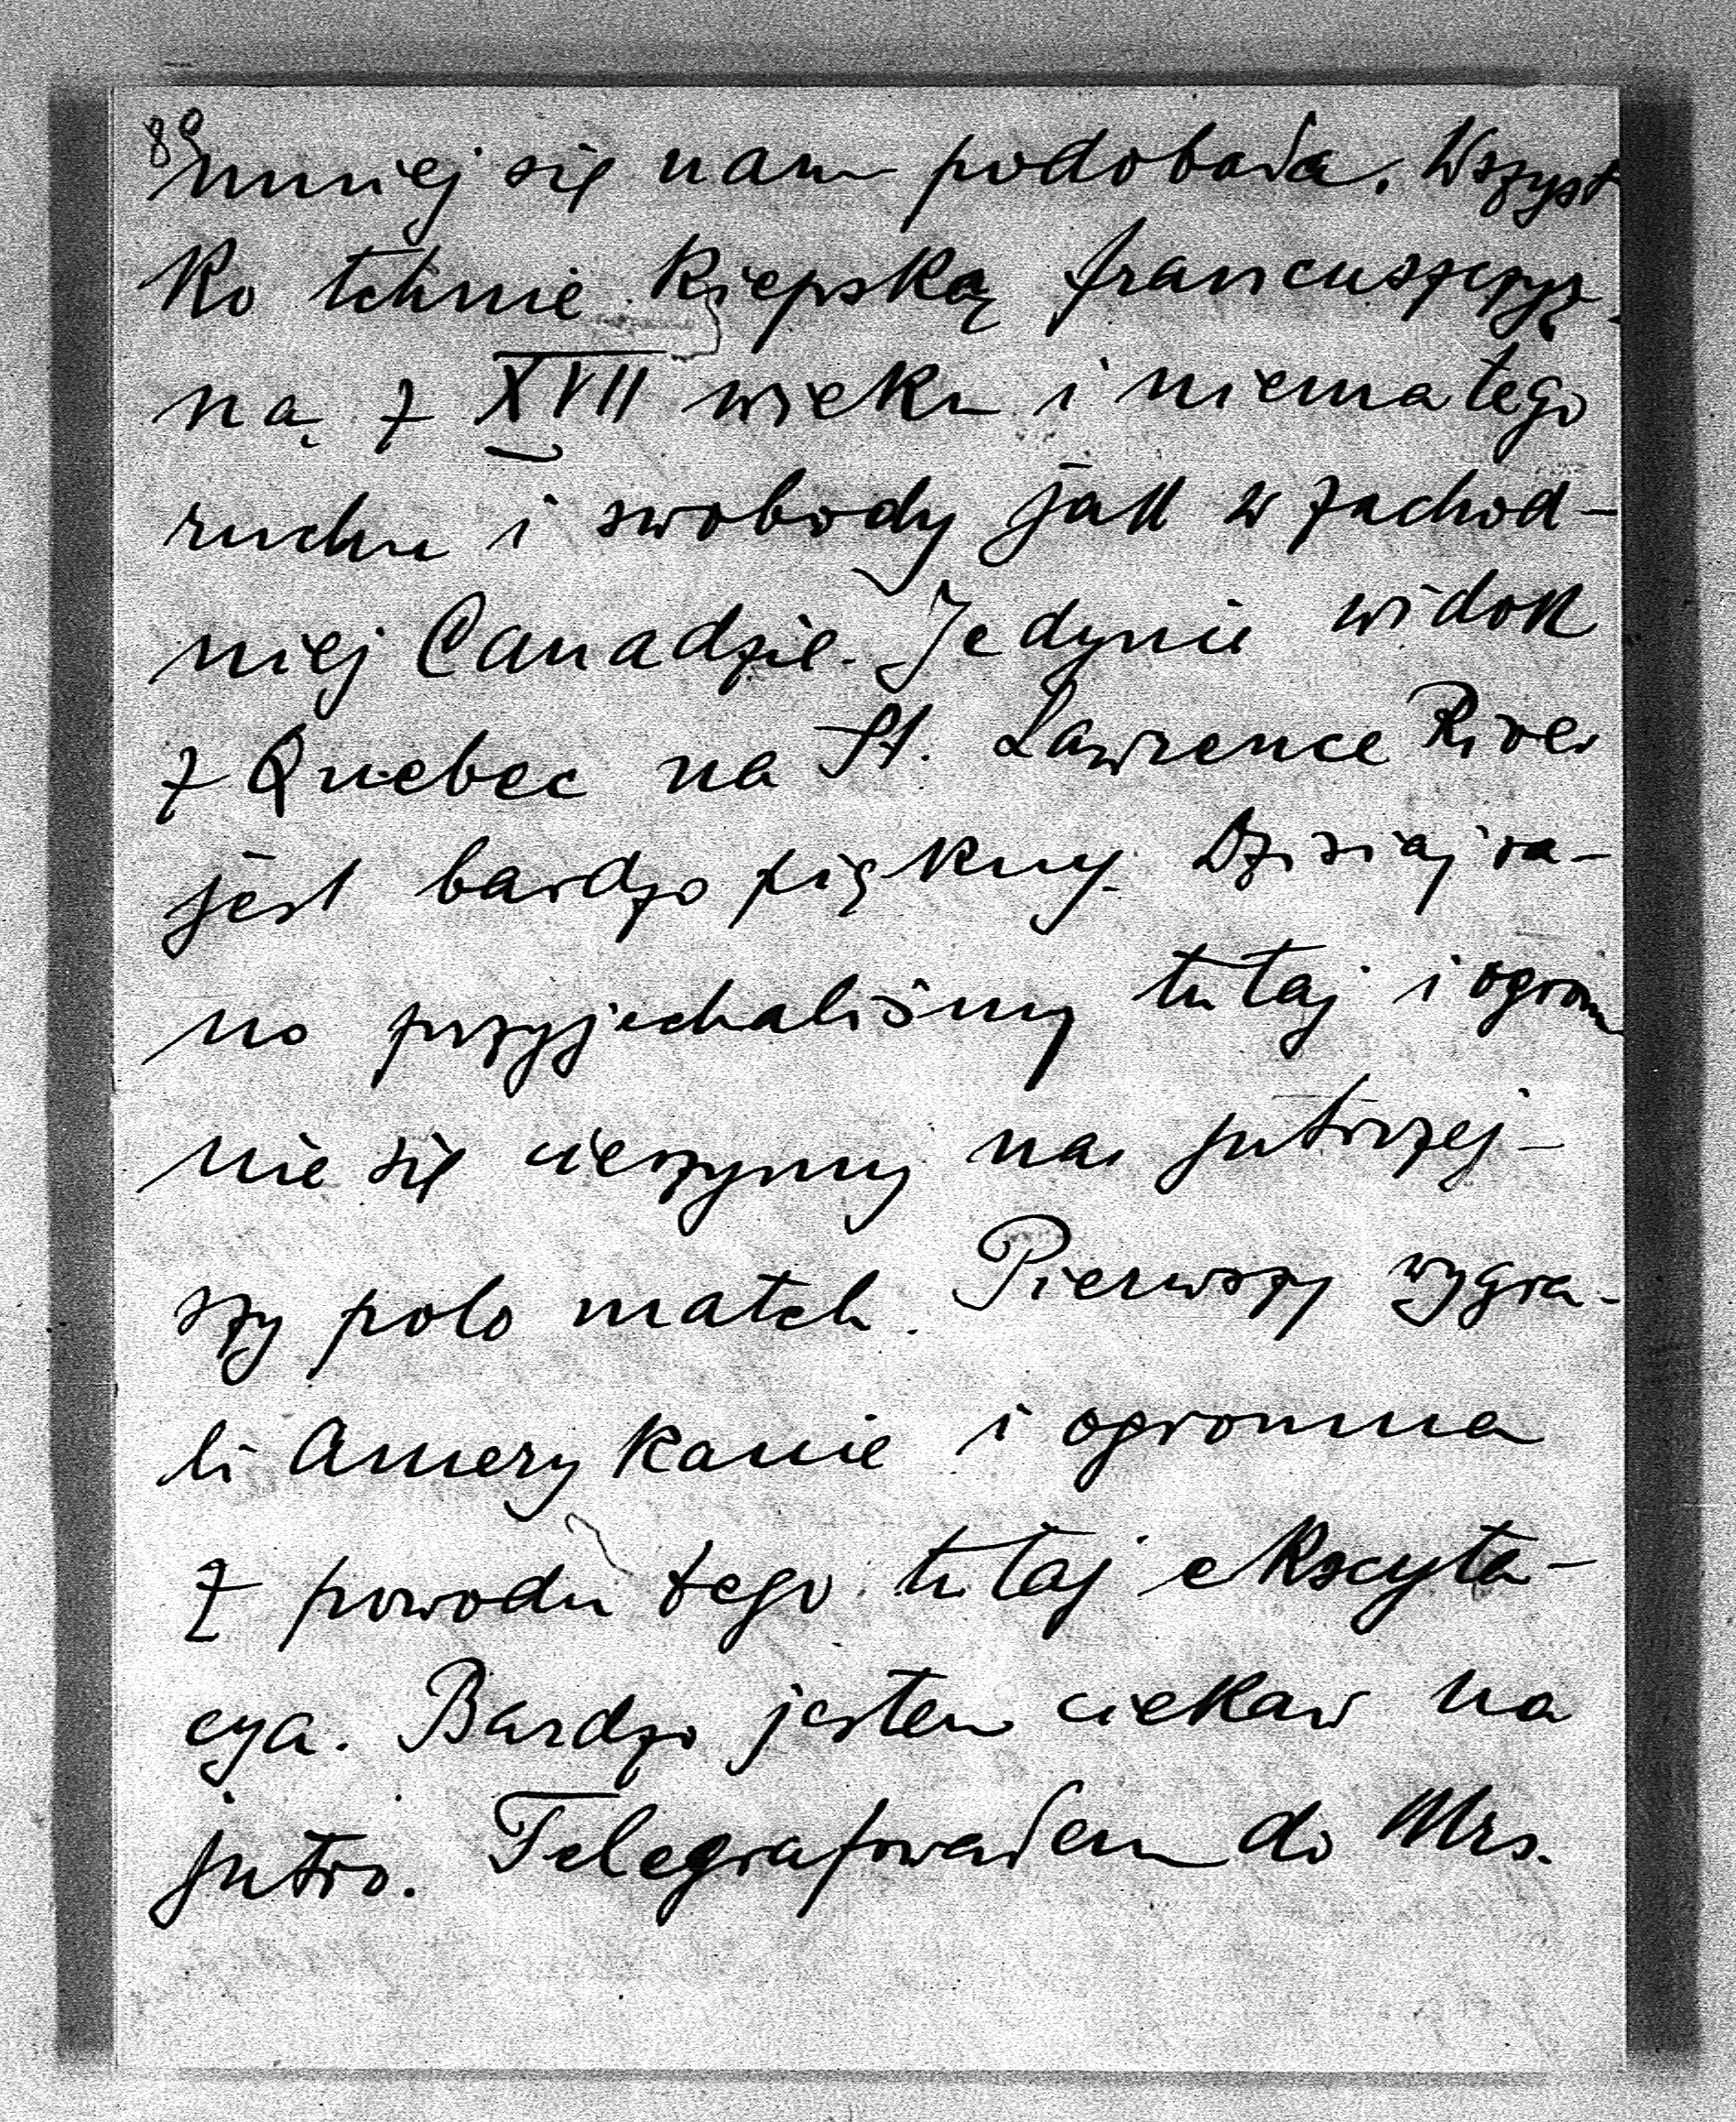 80
mniej się nam podobała. Wszyst
ko tchnie kiepską francuszczyz-
ną z XVII wieku i niema tego
ruchu i swobody jak w zachod-
niej Canadzie. Jedynie widok
z Quebec na St. Lawrence River
jest bardzo piękny. Dzisiaj ra-
no przyjechaliśmy tutaj i ogrom
nie się cieszymy na jutrzej-
szy polo match. Pierwszy wygra-
li Amerykanie i ogromna
z powodu tego tutaj ekscyta-
cya. Bardzo jestem ciekaw na
jutro. Telegrafowałem do Mrs.